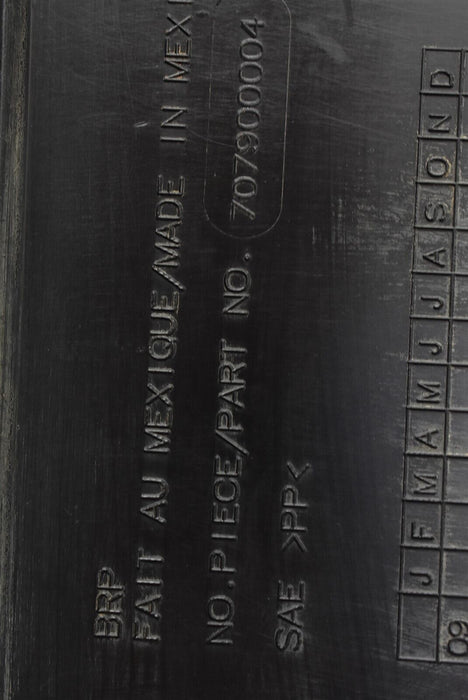 BRP
FAIT AU MEXIQUE/MADE IN MEXI
NO.PIECE/PART NO. 707900004
SAE >PP<
J F M A M J J A S O N D
09